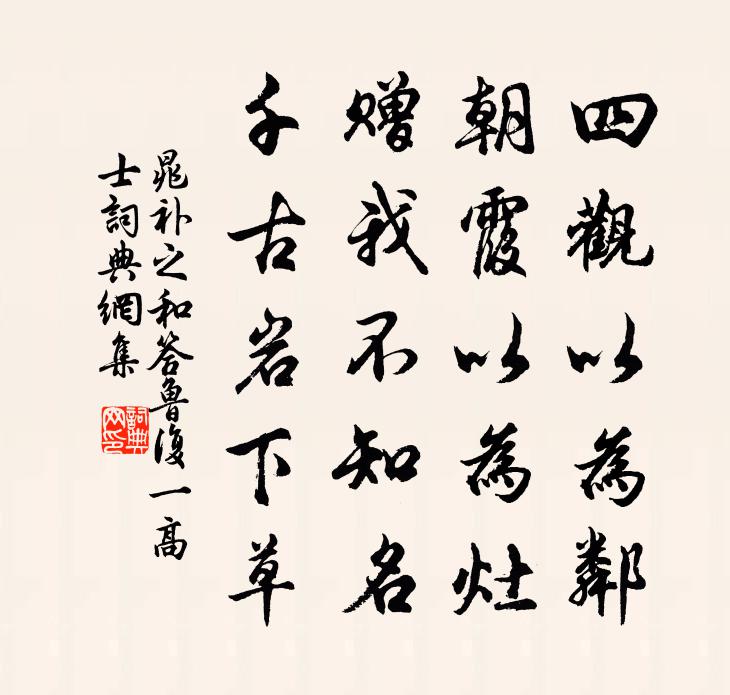 四觀以為鄰
朝霞以為灶
赠我不知名
千古岩下草
晁补之和答魯復一高
士詞典網集
詞典网印